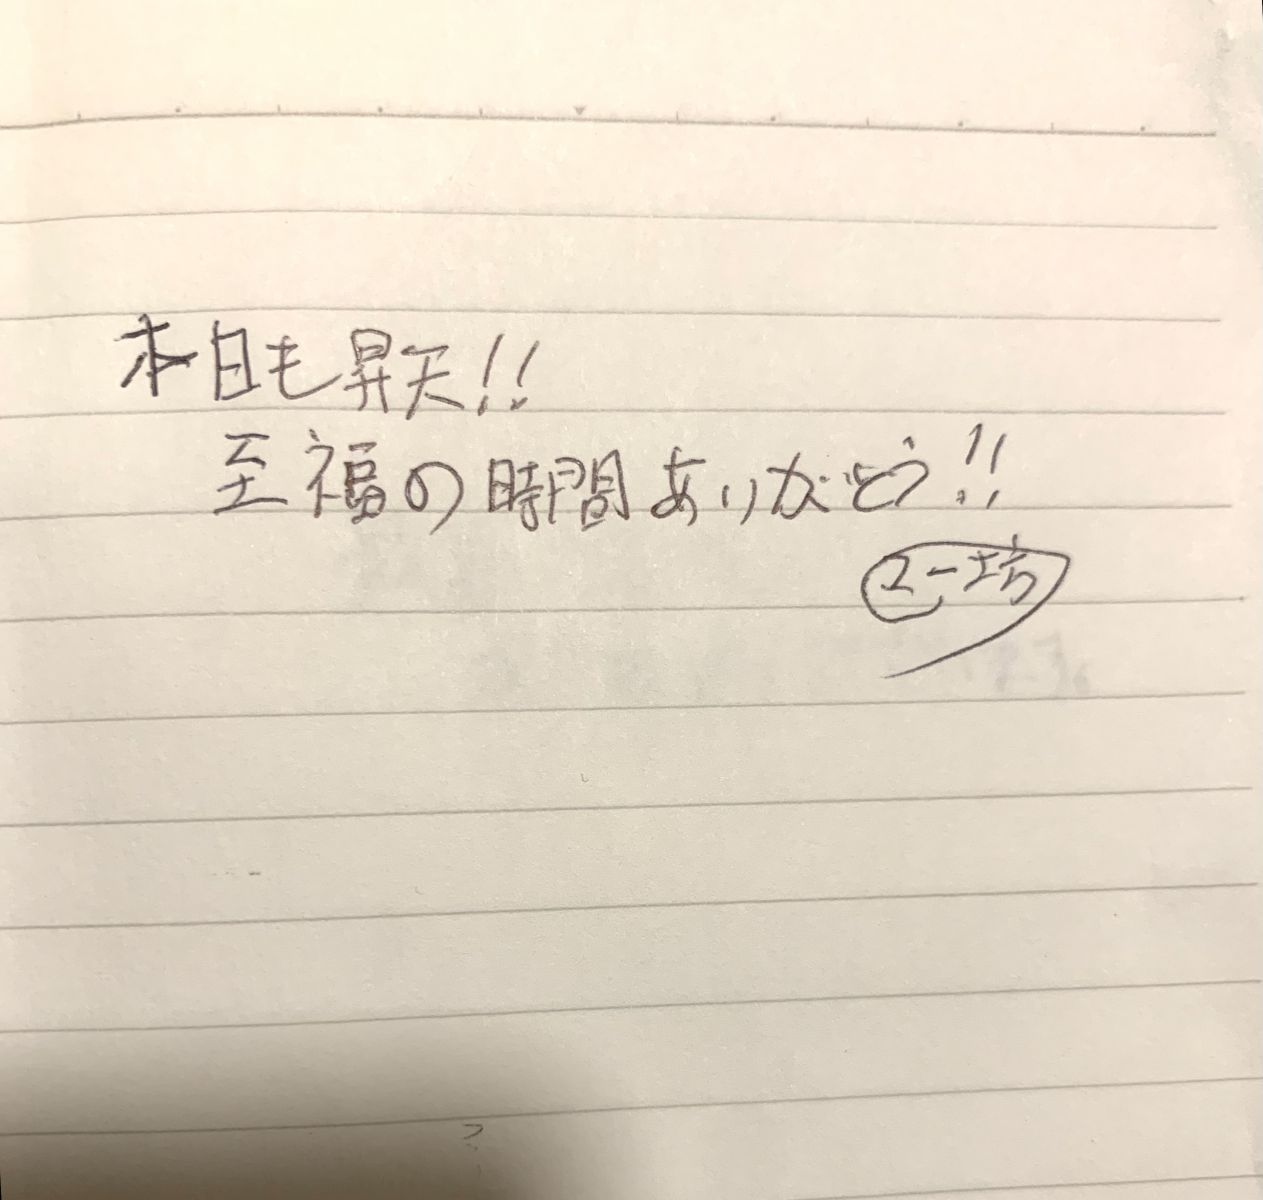 本日も昇天!!
至福の時間ありがとう!!
ユー坊